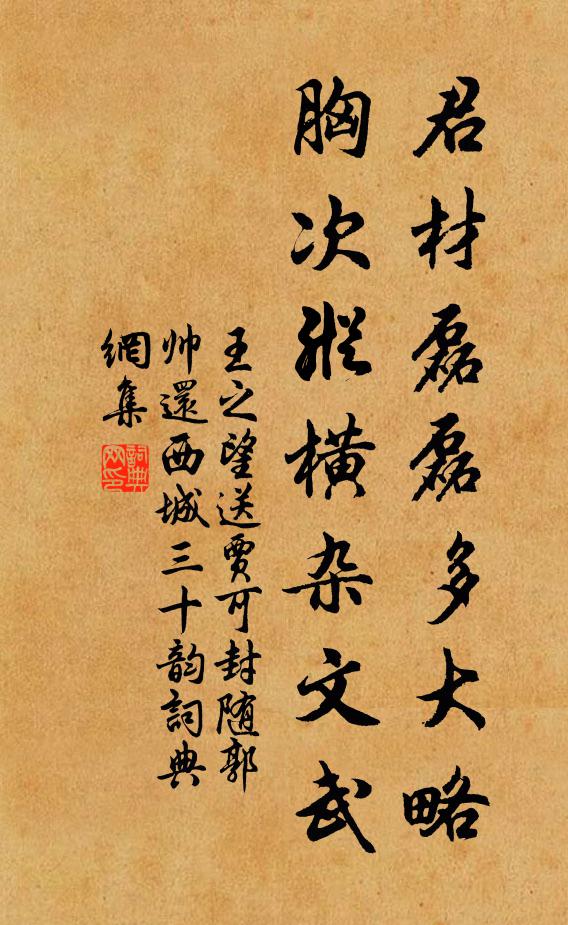 君材磊磊多大略
胸次縱橫杂文武
王之望送贾可封随郭
帅還西城三十韵詞典
網集
詞典
网印